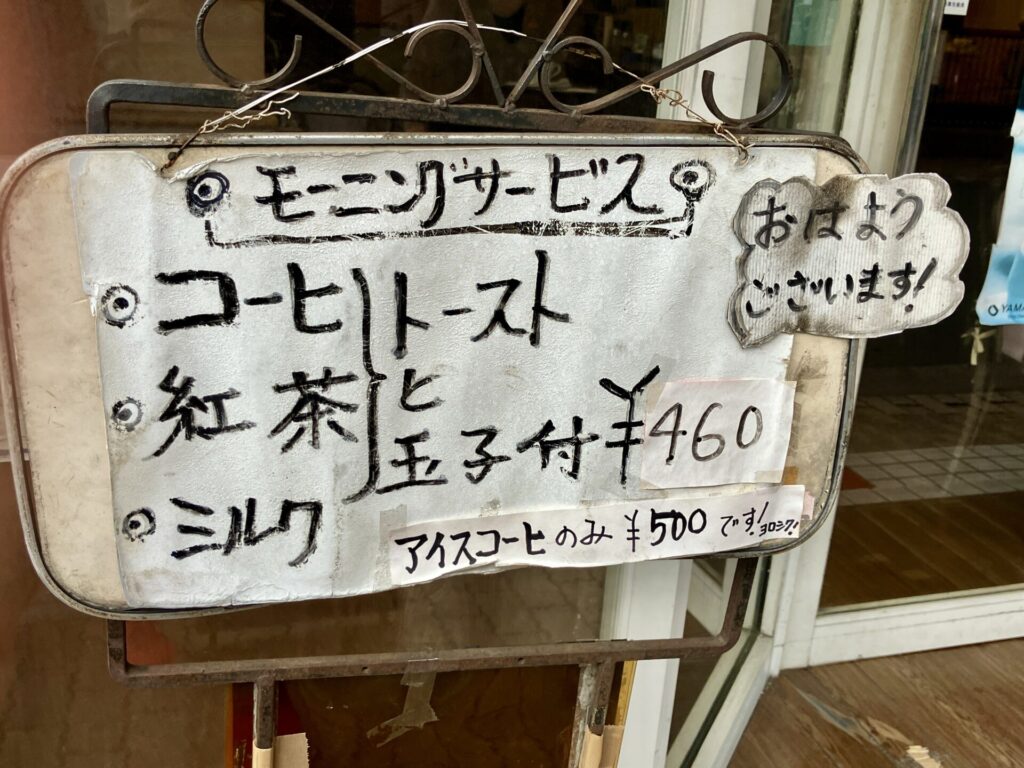 モーニングサービス
おはよう
ございます!
コーヒ
紅茶
ミルク
トースト
と
玉子付 ¥460
アイスコーヒのみ ¥500です! ヨロシク!
YAMA